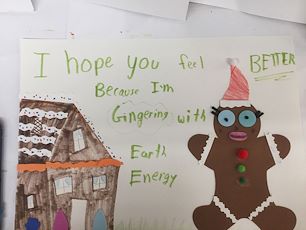 I hope you feel BETTER
Because I'm
Gingering with
Earth
Energy